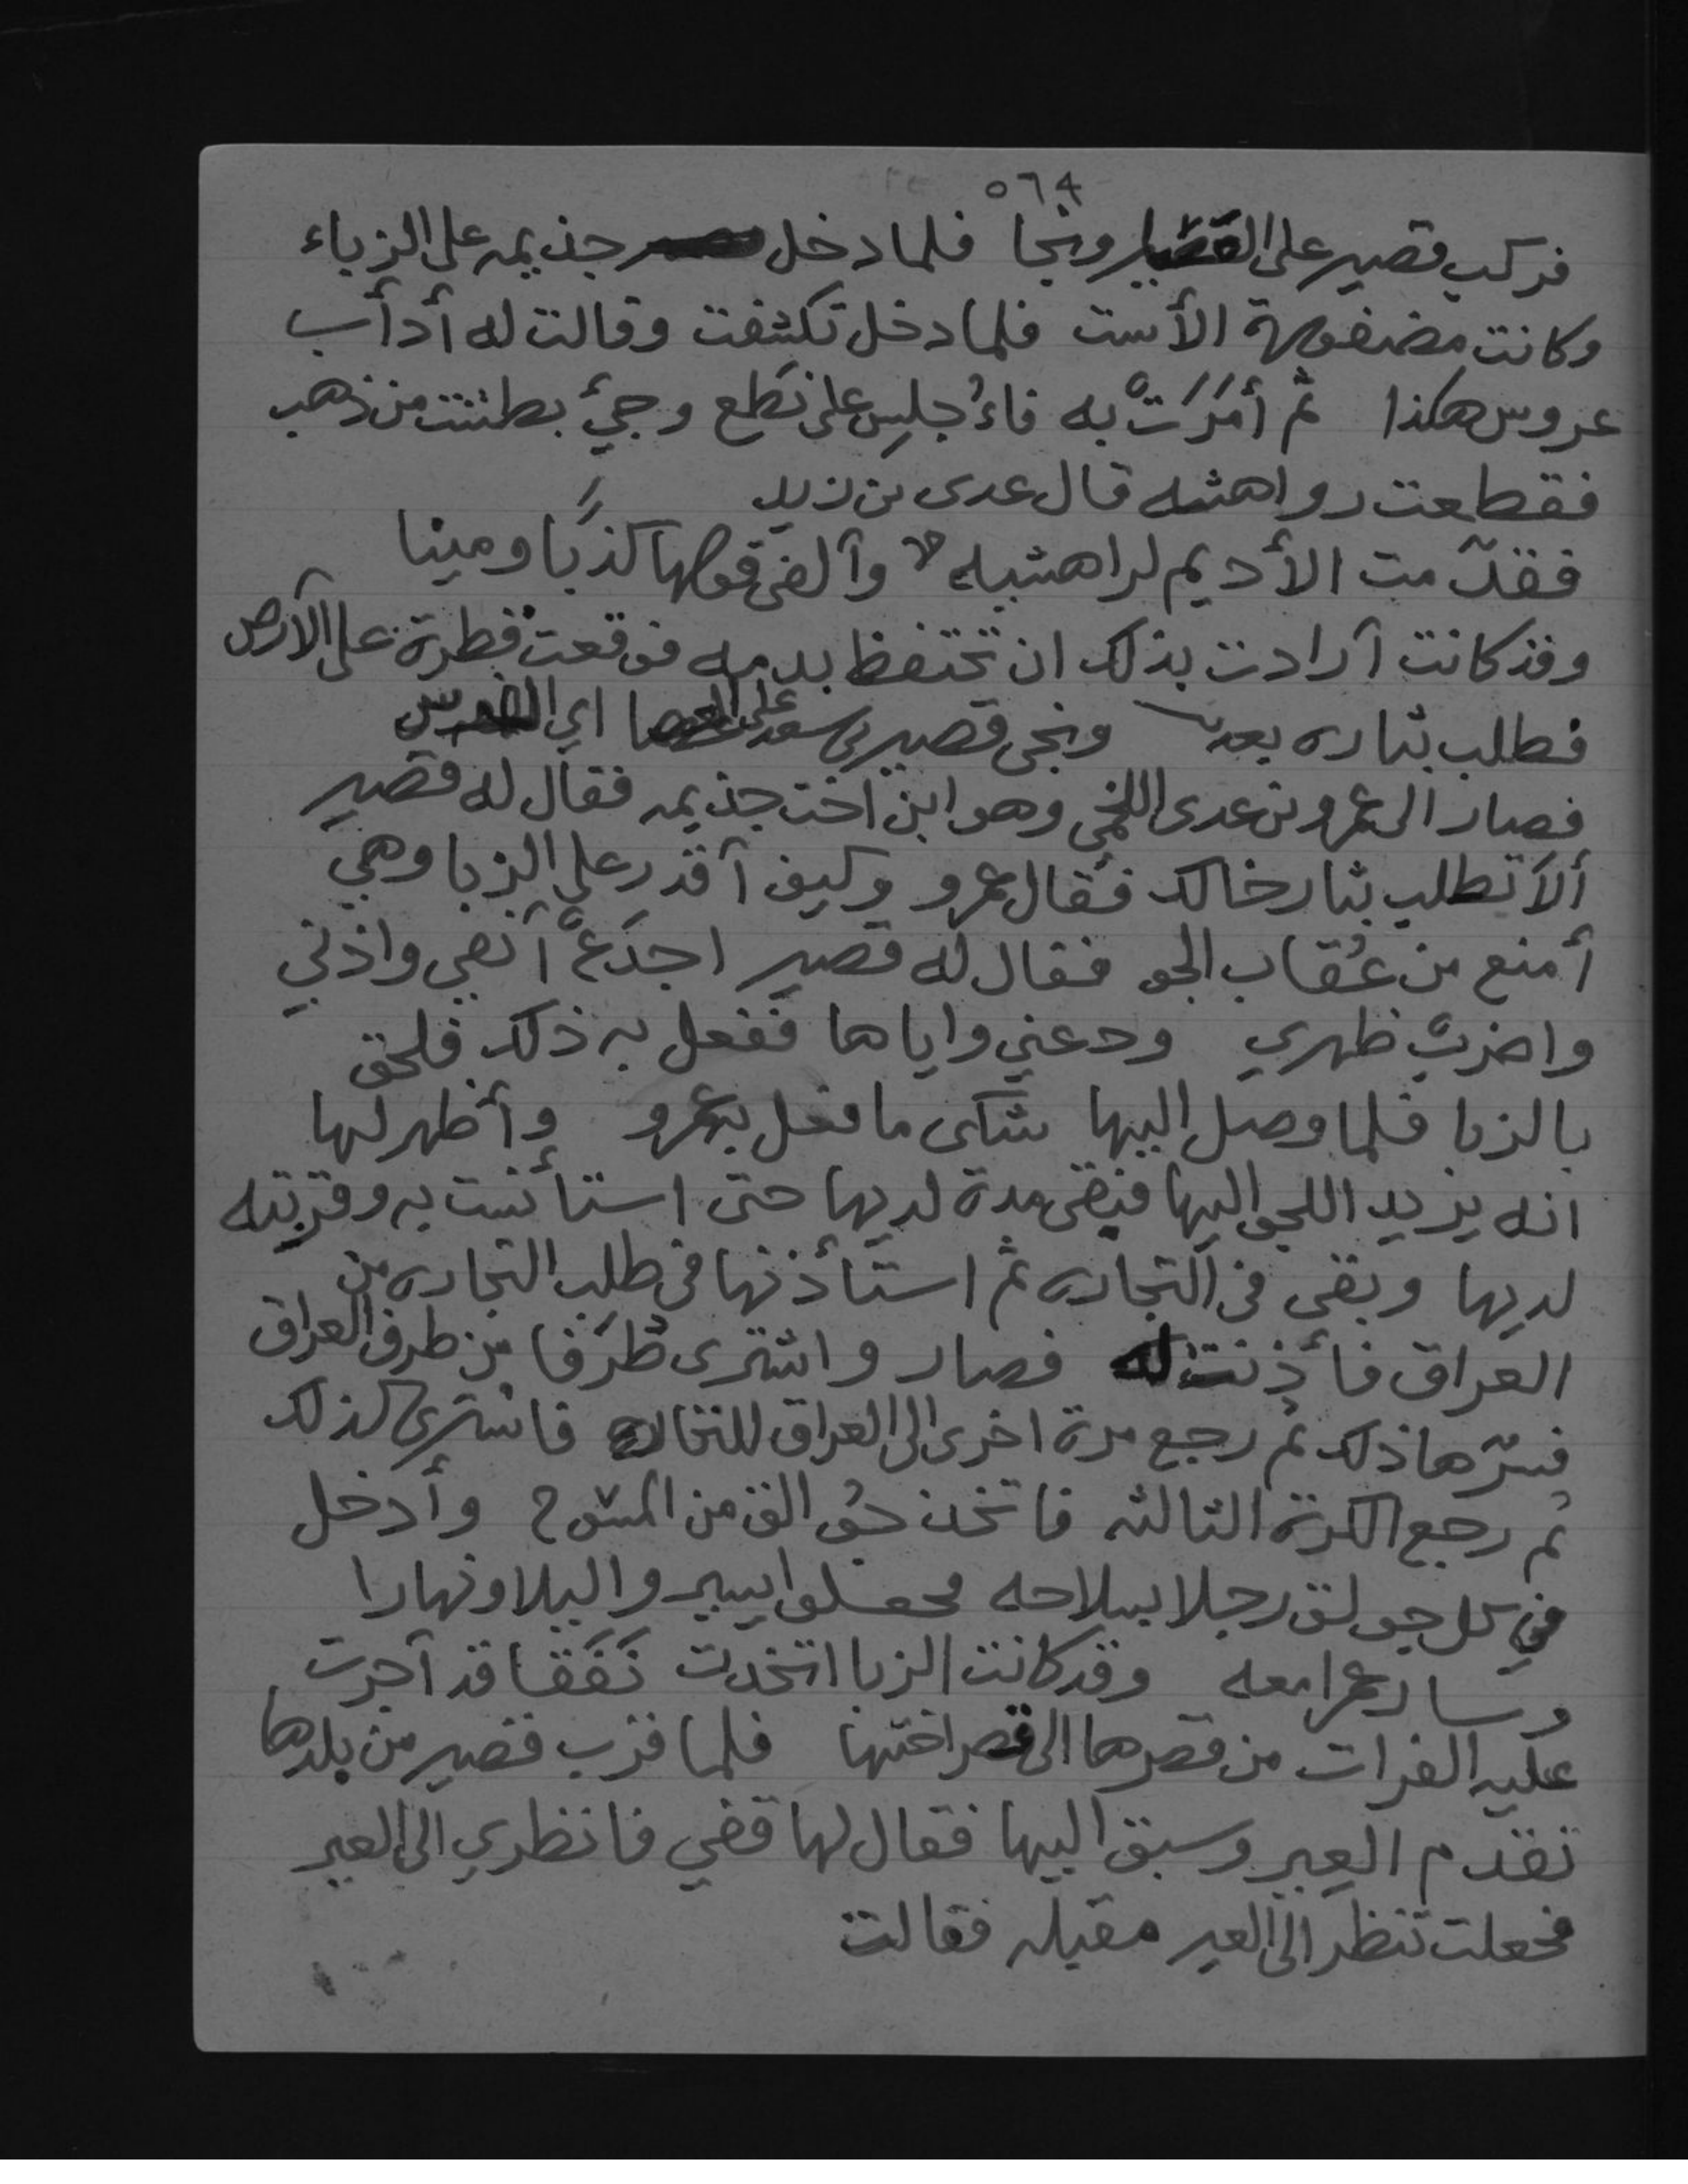 ٥٦٤
فركب قصير على العصا ونجا فلما دخل جذيمه على الزباء
وكانت مضفورة الأست فلما دخل تكشفت وقالت له أدأب
عروس هكذا ثم أمَرَتْ به فاءُجلِس على نَطع وجيءَ بطشت من ذهب
فقطعت رواهشه قال عدى بن زيد
فقدّمت الأديم لراهشيه وألفى قولها كذبًا ومينا
وقد كانت أرادت بذلك ان تحتفظ بدمه فوقعت قطرة على الأرض
فطلب بثاره بعد ونجى قصير بن سعد على العصا اي الفرس
فصار الى عمرو بن عدى اللخمي وهو ابن اخت جذيمه فقال له قصير
ألا تطلب بثار خالك فقال عمرو وكيف أقدر على الزبا وهي
أمنع من عُقاب الجو فقال له قصير اجدَعْ أنفي واذني
واضربْ ظهري ودعني واياها ففعل به ذلك فلحق
بالزبا فلما وصل اليها شكى ما فعل به عمرو وأظهر لها
انه يريد اللجو اليها فبقى مدة لديها حتى استأنست به وقربته
لديها وبقى فى التجاره ثم استأذنها فى طلب التجاره من
العراق فأذنت له فصار واشترى طُرَفا من طرف العراق
فسرّها ذلك ثم رجع مرة اخرى الى العراق للتجاره فاشترى كذلك
ثم رجع الكرة الثالثه فاتخذ جُوالق من المسُوح وأدخل
في كل جولق رجلا بسلاحه فجعلوا يسيروا ليلا ونهارا
وسار عمرا معه وقد كانت الزبا اتخذت نَفَقا قد أجرت
عليه الفرات من قصرها الى قصر اختها فلما قرب قصير من بلدها
تقدم العير وسبق اليها فقال لها قفي فانظري الى العير
فجعلت تنظر الى العير مقبله فقالت